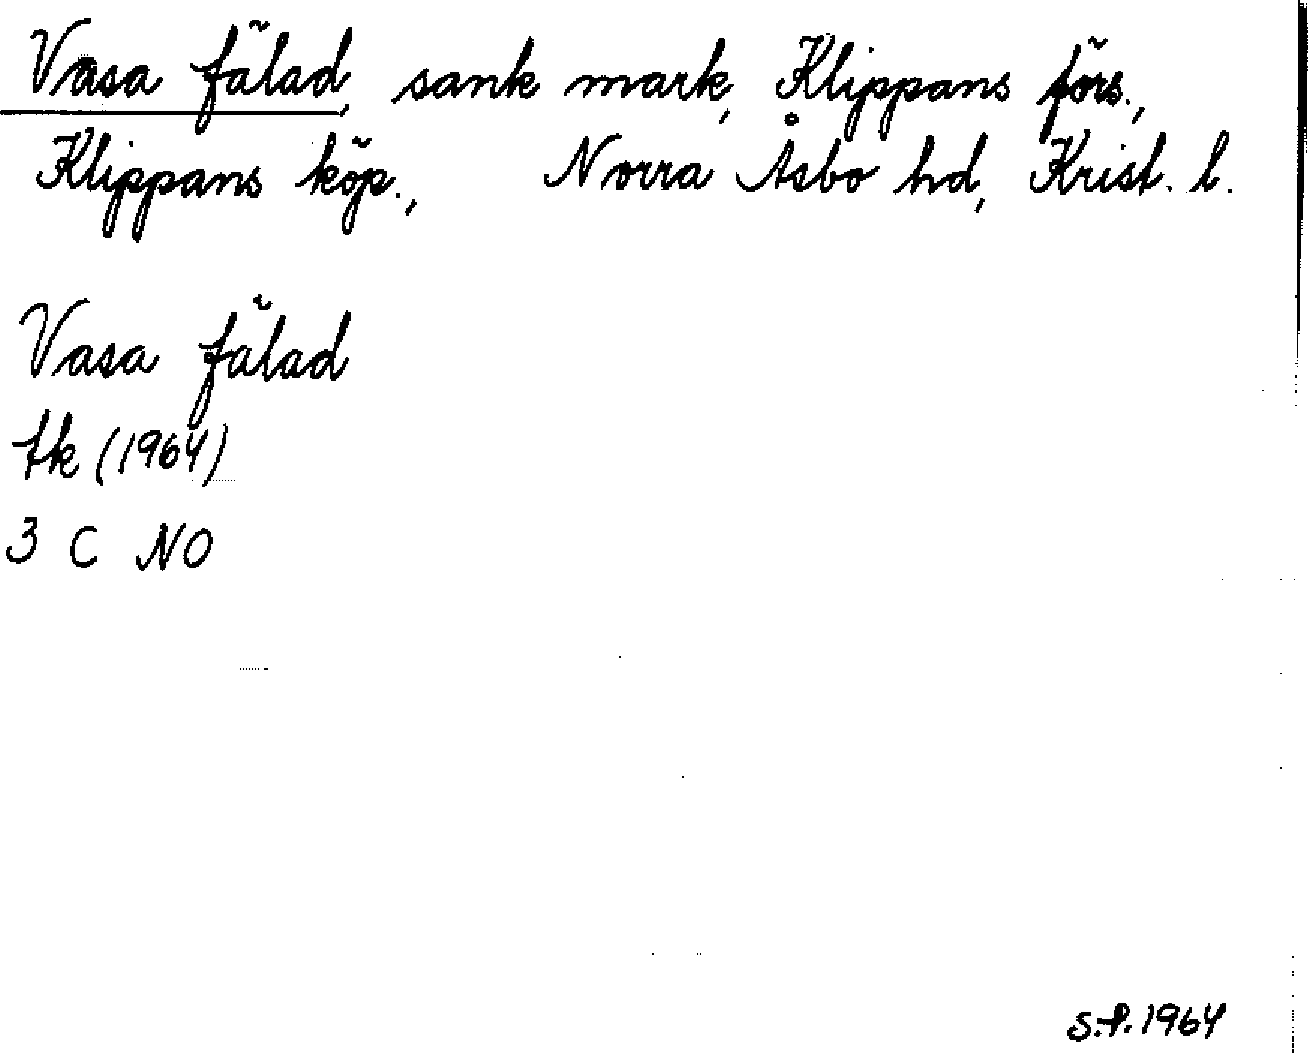 Vasa fälad, sank mark, Klippans förs.,
Klippans köp., Norra Åsbo hd, Krist. l.
Vasa fälad
tk (1964)
3 C NO
S.f. 1964